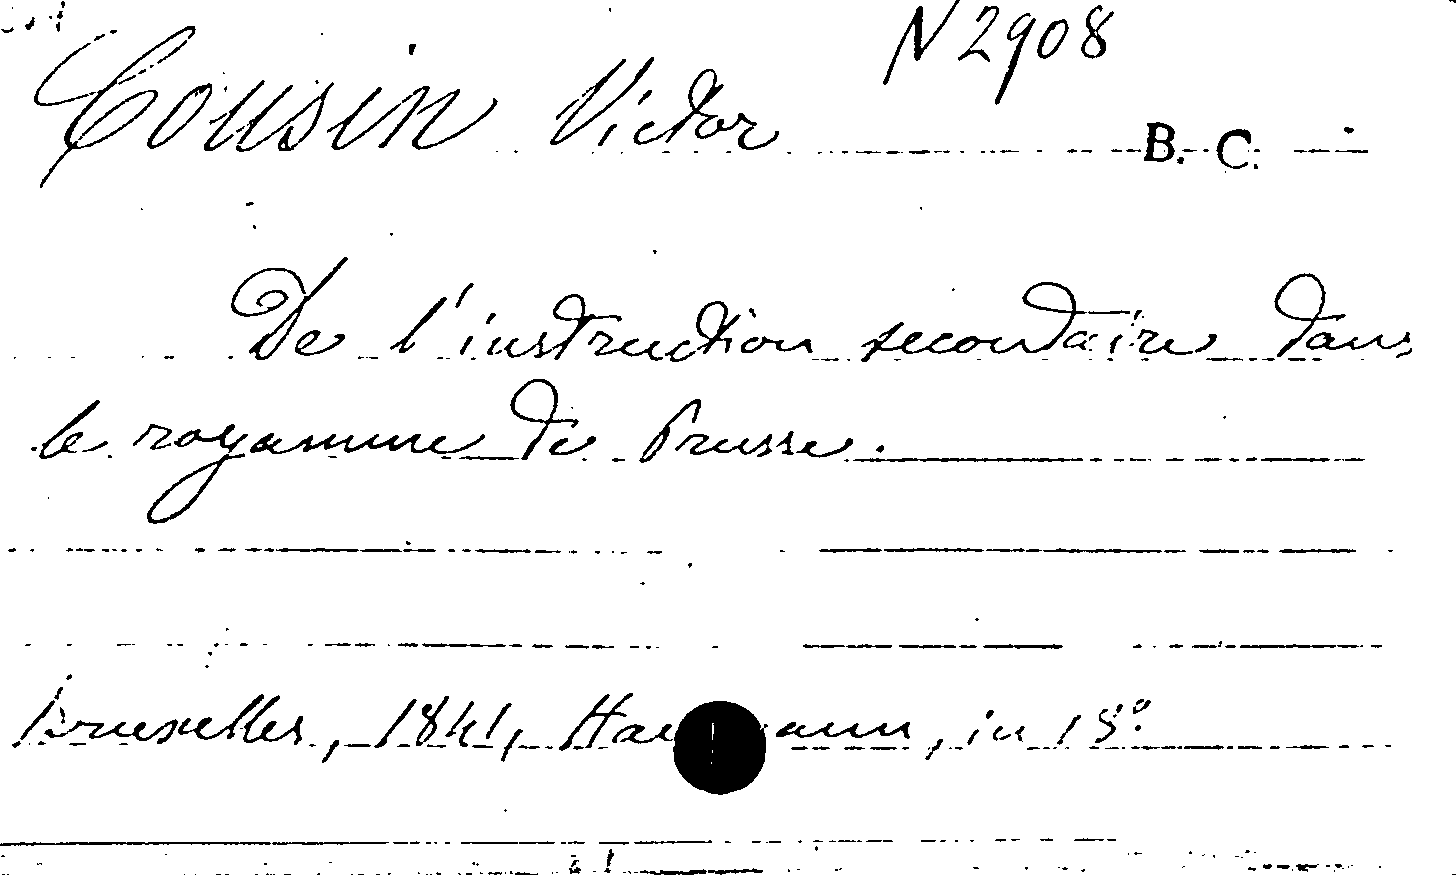 N 2908
Cousin Victor
B. C.
De l'instruction secondaire dans
le royaume de Prusse.
Bruxelles, 1841, in 18°